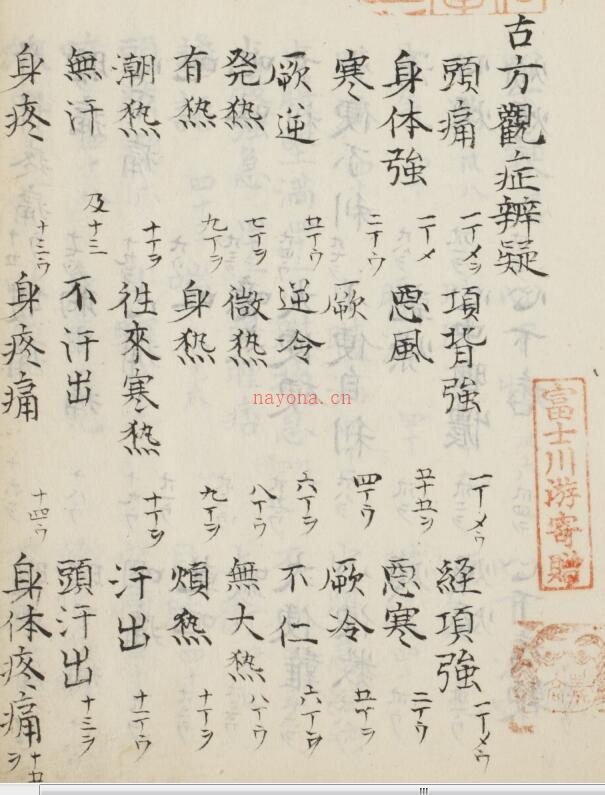 古方觀症辨疑
頭痛 一丁メヲ 項背強 一丁メウ 経項強 一丁メウ
身体強 一丁メ 惡風 五十五ヲ 惡寒 二丁ウ
寒 二丁ウ 厥 四丁ウ 厥冷
厥逆 逆冷 六丁ヲ 不仁 六丁ヲ
発熱 七丁ヲ 微熱 八丁ウ 無大熱 八丁ウ
有熱 九丁ヲ 身熱 九丁ヲ 煩熱 十丁ヲ
潮熱 十丁ヲ 徃來寒熱 十丁ヲ 汗出 十二丁ウ
無汗 及十三 不汗出 頭汗出 十三ヲ
身疼 十三ウ 身疼痛 十四ウ 身体疼痛 十五ヲ
富士川游寄贈
nayona.cn